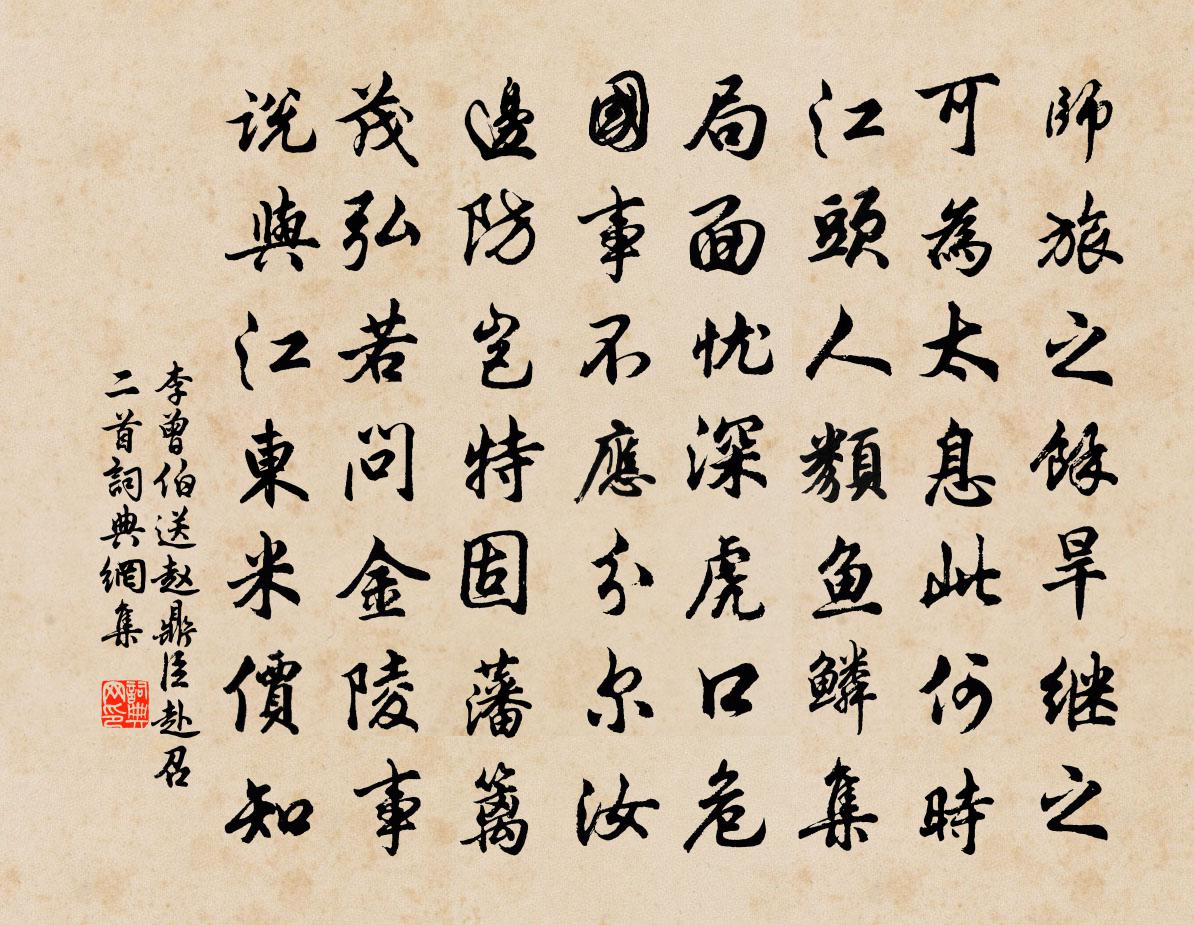 師旅之餘旱继之
可為太息此何時
江頭人類鱼鱗集
局面忧深虎口危
國事不應分尔汝
邊防岂特固藩篱
茂弘若问金陵事
说與江東米價知
李曾伯送赵鼎臣赴召
二首詞典網集
詞典
网印